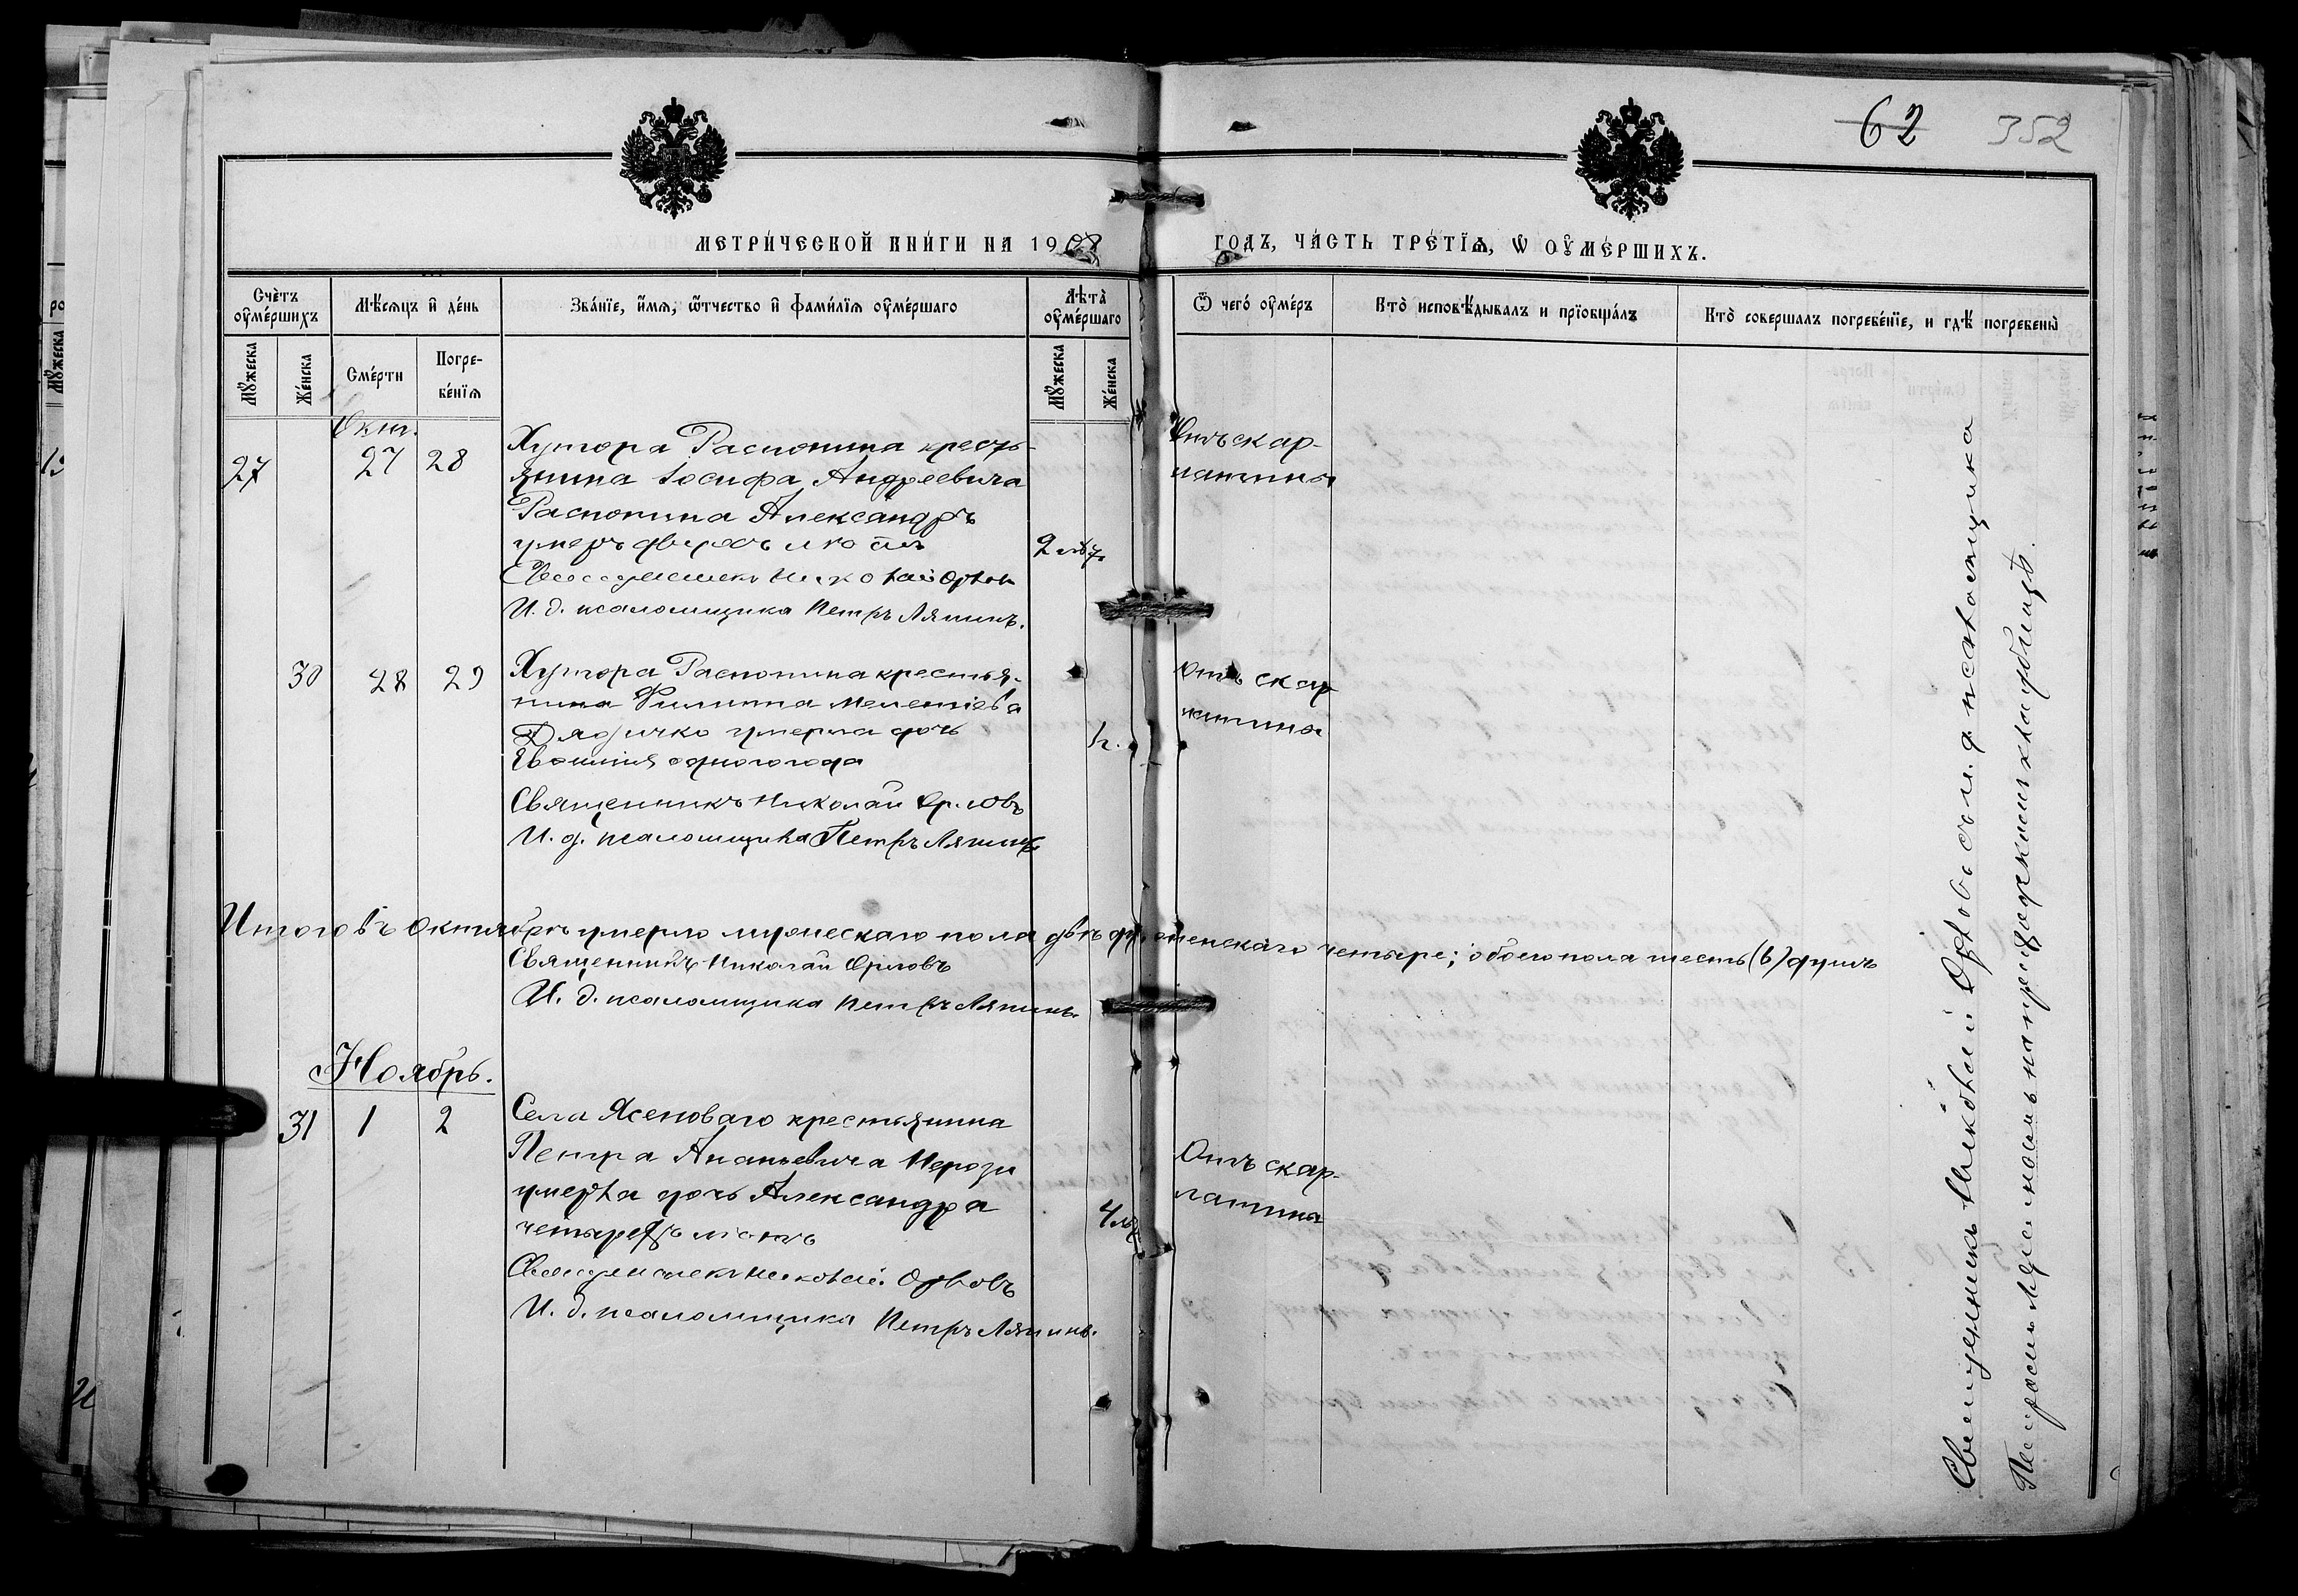 62 352
МЕТРИЧЕСКОЙ КНИГИ НА 1908 ГОДЪ, ЧАСТЬ ТРЕТІЯ, Ѡ ОУМЕРШИХЪ.
Счетъ оумершихъ
Мѣсяцъ и день
Званіе, имя, ѿчество и фамилія оумершаго
Лѣта оумершаго
Ѿ чего оумеръ
Кто исповѣдывалъ и пріобщалъ
Кто совершалъ погребеніе, и гдѣ погребены
Мужеска
Женска
Смерти
Погребенія
Мужеска
Женска
Окт.
27 27 28
Хутора Распопина кресть-
янина Іосифа Андреевича
Распопина Александръ
умеръ двухъ лѣтъ
2 лѣтъ
Отъ скар-
латины
Священникъ Николай Орловъ
И. д. псаломщика Петръ Ляпинъ.
30 28 29
Хутора Распопина крестья-
нина Филиппа Мелентіева
умерла дочь
одного года
1 г.
Отъ скар
латины
Священникъ Николай Орловъ
И. д. псаломщика Петръ Ляпинъ
Итого въ Октябрѣ умерло мужескаго пола двѣ женскаго четыре; обоего пола шесть (6) душъ
Священникъ Николай Орловъ
И. д. псаломщика Петръ Ляпинъ.
Ноябрь.
31 1 2
Села Ясеноваго крестьянина
Петра Ананьевича
умерла дочь Александра
четырехъ лѣтъ
4 лѣтъ
Отъ скар-
латины
Священникъ Николай Орловъ
И. д. псаломщика Петръ Ляпинъ.
Священникъ Николай Орловъ съ и. д. псаломщика
Петромъ Ляпиномъ на приходскомъ кладбищѣ.